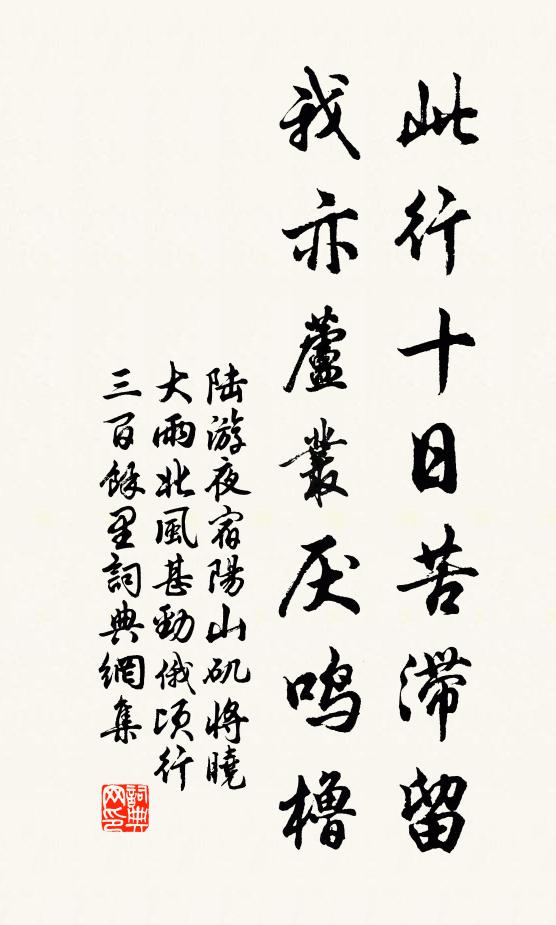 此行十日苦滯留
我亦蘆叢厌鸣櫓
陆游夜宿陽山矶將曉
大雨北風甚勁俄頃行
三百餘里詞典網集
詞典网印